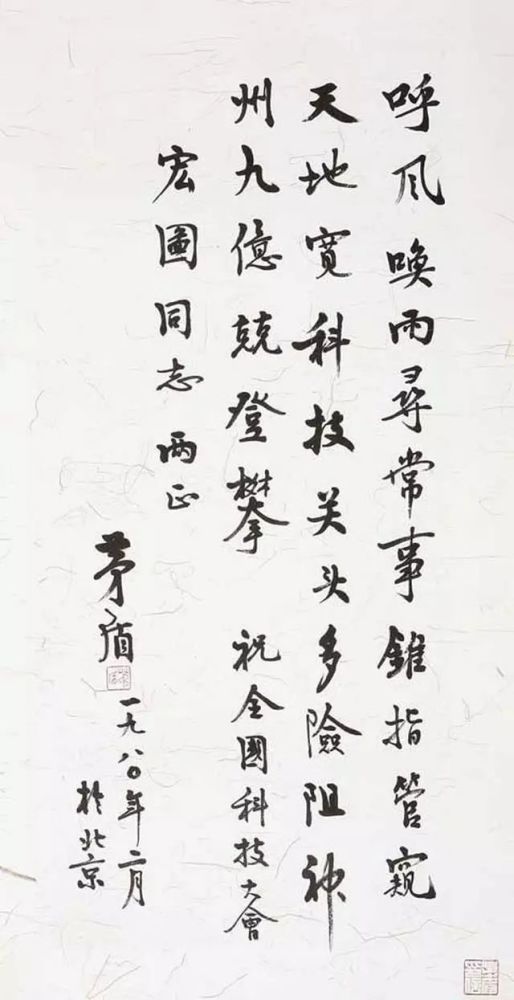 呼风唤雨寻常事錐指管窥
天地宽科技关头多險阻神
州九億兢登攀
祝全國科技大會
宏圖同志两正
茅盾
一九八〇年二月
於北京